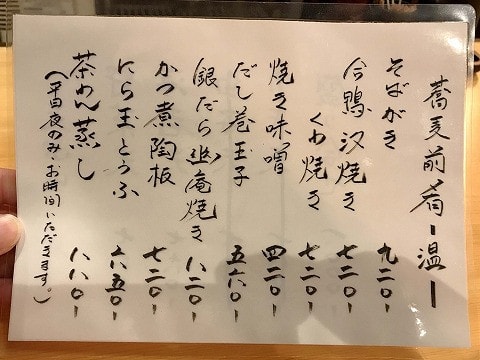 蕎麦前肴ー温ー
そばがき 九二〇ー
合鴨汐焼き 七二〇ー
くわ焼き 七二〇ー
焼き味噌 四二〇ー
だし巻玉子 五六〇ー
銀だら幽庵焼き 八二〇ー
かつ煮陶板 七二〇ー
にら玉とうふ 六五〇ー
茶わん蒸し 八八〇ー
（平日夜のみ・お時間いただきます。）